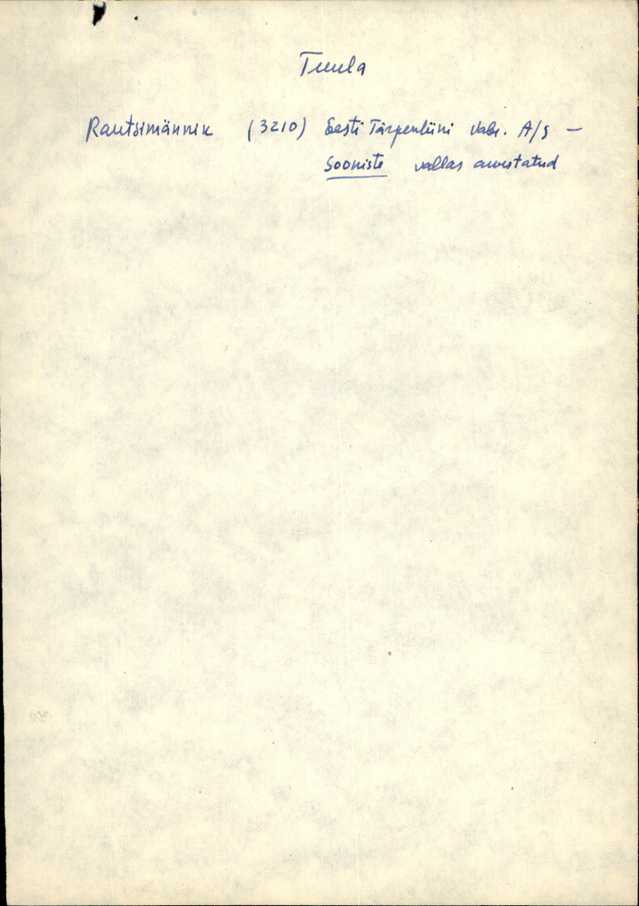 Tuula
Rautsimännik (3210) Eesti Tärpentiini vabr. A/S –
Sooniste vallas arvestatud